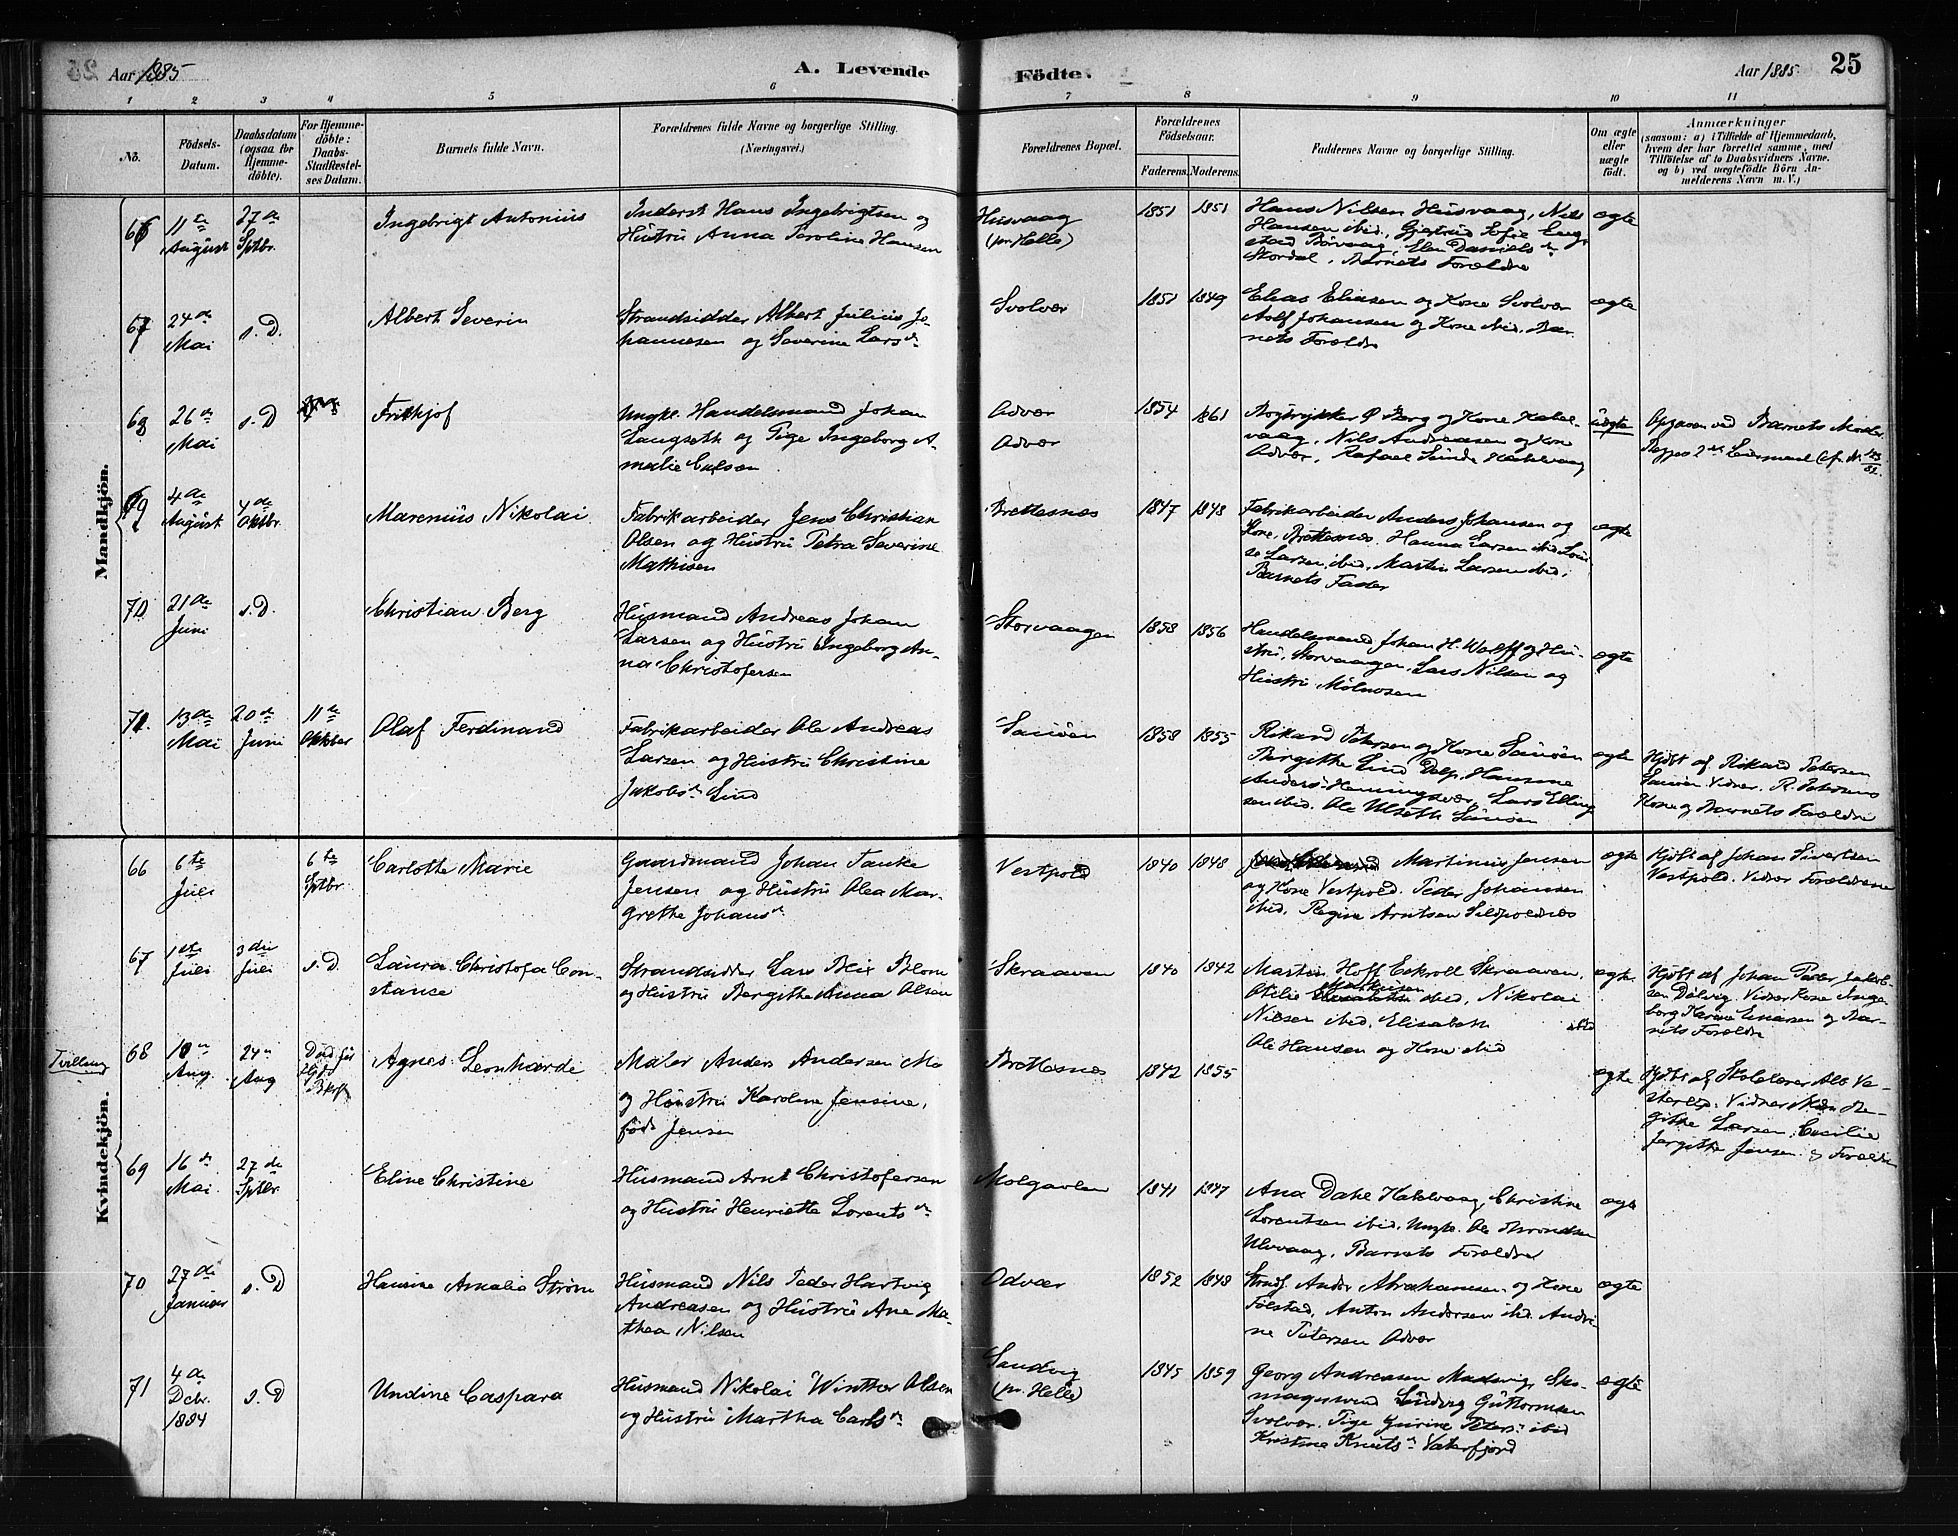 Aar 1885
A. Levende
Födte.
Aar 1885.
25
1 2 3 4 5 6 7 8 9 10 11
No.
Födsels-Datum.
Daabsdatum (ogsaa for Hjemme-döbte).
For Hjemme-döbte: Daabs-Stadfestel-ses Datum.
Barnets fulde Navn.
Forældrenes fulde Navne og borgerlige Stilling.
(Næringsvei.)
Forældrenes Bopæl.
Forældrenes Födselsaar.
Faderens. Moderens.
Faddernes Navne og borgerlige Stilling.
Om ægte eller uægte födt.
Anmærkninger
(saasom: a) i Tilfælde af Hjemmedaab,
hvem der har forrettet samme, med
Tilföielse af to Daabsvidners Navne.
og b) ved uægtefödte Börn An-
melderens Navn m. V.)
Mandkjön.
66 11te August 27de Sptbr. Ingebrigt Antonius
Inderst Hans Ingebrigtsen og
Hustru Anna Peroline Hansen
Husvaag
(pr. Helle)
1851 1851
Hans Nilsen Husvaag, Nils
Hansen ibid, Gjertrud Sofie Eng-
stad Börvaag, Elen Daniels dr
Stordal, Barnets Forældre
ægte
67 24de Mai s. D. Albert Severin
Strandsidder Albert Julius Jo-
hannesen og Severine Lars dr
Svolvær
1851 1849
Elias Eliasen og Kone Svolvær
Adolf Johansen og Kone ibid. Bar-
nets Forældre
ægte
68 26de Mai s. D Frithjof
Ungk. Handelsmand Johan
Langseth og Pige Ingeborg A-
malie Carlsen
Odvær
Odvær
1854 1861
Ø Berg og Kone Kabel-
vaag, Nils Andreasen og Kone
Odvær, Rafael Kabelvaag
uægte
Opgaven ved Barnets Moder.
Begges 2det Leiermaal
69 4de August 4de Oktbr. Marenius Nikolai
Fabrikarbeider Jens Christian
Olsen og Hustru Petra Severine
Mathisen
Brettesnes
1847 1848
Fabrikarbeider Anders Johansen og
Kone, Brettesnes. Hanna Larsen ibid Loui-
se Larsen, ibid, Martin Larsen ibid,
Barnets Fader
ægte
70 21de Juni s. D. Christian Berg
Husmand Andreas Johan
Larsen og Hustru Ingeborg An-
na Christofersen
Storvaagen
1858 1856
Handelsmand Johan H. Wolff og Hu-
stru, Storvaagen, Lars Nilsen og
Hustru Molnosen
ægte
71. 13de Mai 20de Juni 11te Oktber Olaf Ferdinand
Fabrikarbeider Ole Andreas
Larsen og Hustru Christine
Jakobs dr Lind
Sauöen
1858 1855
Rikard Petersen og Kone Sauöen
Birgithe Lind Dolp, Hansine
Anders: Henningsvær, Lars Elling
sen ibid. Ole Ulseth Sauöen
ægte
Hjdbt af Rikard Petersen
Sauöen Vidner. R. Petersens
Kone og Barnets Forældre
Kvindekjön.
66 6te Juli 6te Sptbr. Carlotte Marie
Gaardmand Johan Tanke
Jensen og Hustru Olea Mar-
grethe Johans dr
Vestpold
1840 1848
Martinus Jensen
og Kone Vestpold. Peder Johansen
ibid, Regine Arntsen Sildpoldnes
ægte
Hjdbt af Johan Sivertsen
Vestpold. Vidner Forældrene
67 1ste Juli 3die Juli s. D. Laura Christofa Con-
stance
Strandsidder Lars Blix Blom
og Hustru Bergithe Anna Olsen
Skraaven
1840 1842
Martin Hoff Eckroll Skraaven,
Otilie Mathisen ibid, Nikolai
Nilsen ibid, Elisabeth ibid
Ole Hansen og Kone ibid
ægte
Hjdbt af Johan Peder Jakob-
sen Dölvig. Vidner Kone Inge-
borg Einarsen og Bar-
nets Forældre
Tvilling
68 10de Aug. 24de Aug Död för Bkrft Agnes Leonharde
Maler Anders Andersen Mo
og Hustru Karoline Jensine,
född Jensen
Brettesnes
1842 1855
ægte
Hjdbt af Skolelærer Alb Ve-
sterlld. Vidner Be-
githe Larsen, Cecilie
Jensen og Forældre
69 16de Mai 27de Sptbr. Eline Christine
Husmand Arnt Christofersen
og Hustru Henriette Lorents dr
Molgavlen
1841 1847
Ana Dahl Kabelvaag, Christine
Lorentsen ibid, Ungk. Ole Throndsen
Ulvaag, Barnets Forældre
ægte
70 27de Januar s. D Hansine Amalia Ström
Husmand Nils Peder Hartvig
Andreasen og Hustru Ane Ma-
thea Nilsen
Odvær
1852 1848
Strdsf Anders Abrahamsen og Kone
Folstad, Anton Andersen ibid. Andri-
ne Petersen Odvær
ægte
71 4de Dcbr. 1884 s. D Undine Caspara
Husmand Nikolai Winther Olsen
og Hustru Martha Carls dr
Sandvig
(pr. Helle)
1845 1859
Georg Andreasen Madvig, Sko-
magersvend Ludvig Guttormsen
Svolvær. Pige Gurine Peters: ibid
Kristine Knuts dr Vaterfjord
ægte